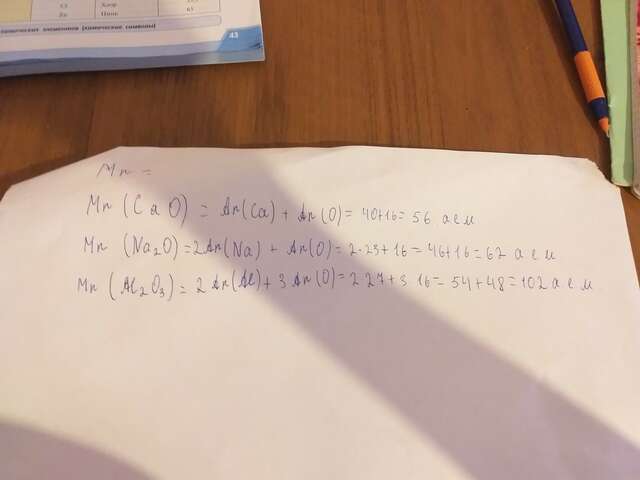 Cl Хлор
Zn Цинк 65
химических элементов (химические символы)
43
Mr =
Mr (CaO) = Ar(Ca) + Ar(O) = 40+16 = 56 а е м
Mr (Na₂O) = 2Ar(Na) + Ar(O) = 2·23 + 16 = 46+16 = 62 а е м
Mr (Al₂O₃) = 2 Ar(Al) + 3 Ar(O) = 2 27 + 3 16 = 54 + 48 = 102 а е м